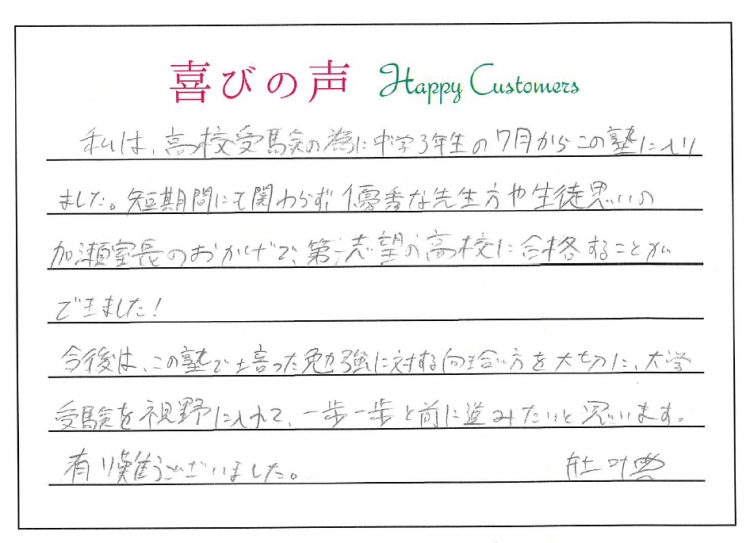 喜びの声 Happy Customers
私は、高校受験の為に中学3年生の7月からこの塾に入り
ました。短期間にも関わらず優秀な先生方や生徒思いの
加瀬室長のおかげで、第一志望の高校に合格することが
できました！
今後は、この塾で培った勉強に対する向き合い方を大切に、大学
受験を視野に入れて、一歩一歩と前に進みたいと思います。
有り難うございました。